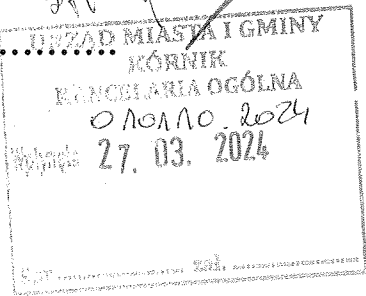 URZĄD MIASTA I GMINY
KÓRNIK
KANCELARIA OGÓLNA
Wpłynęło 27. 03. 2024
zał.